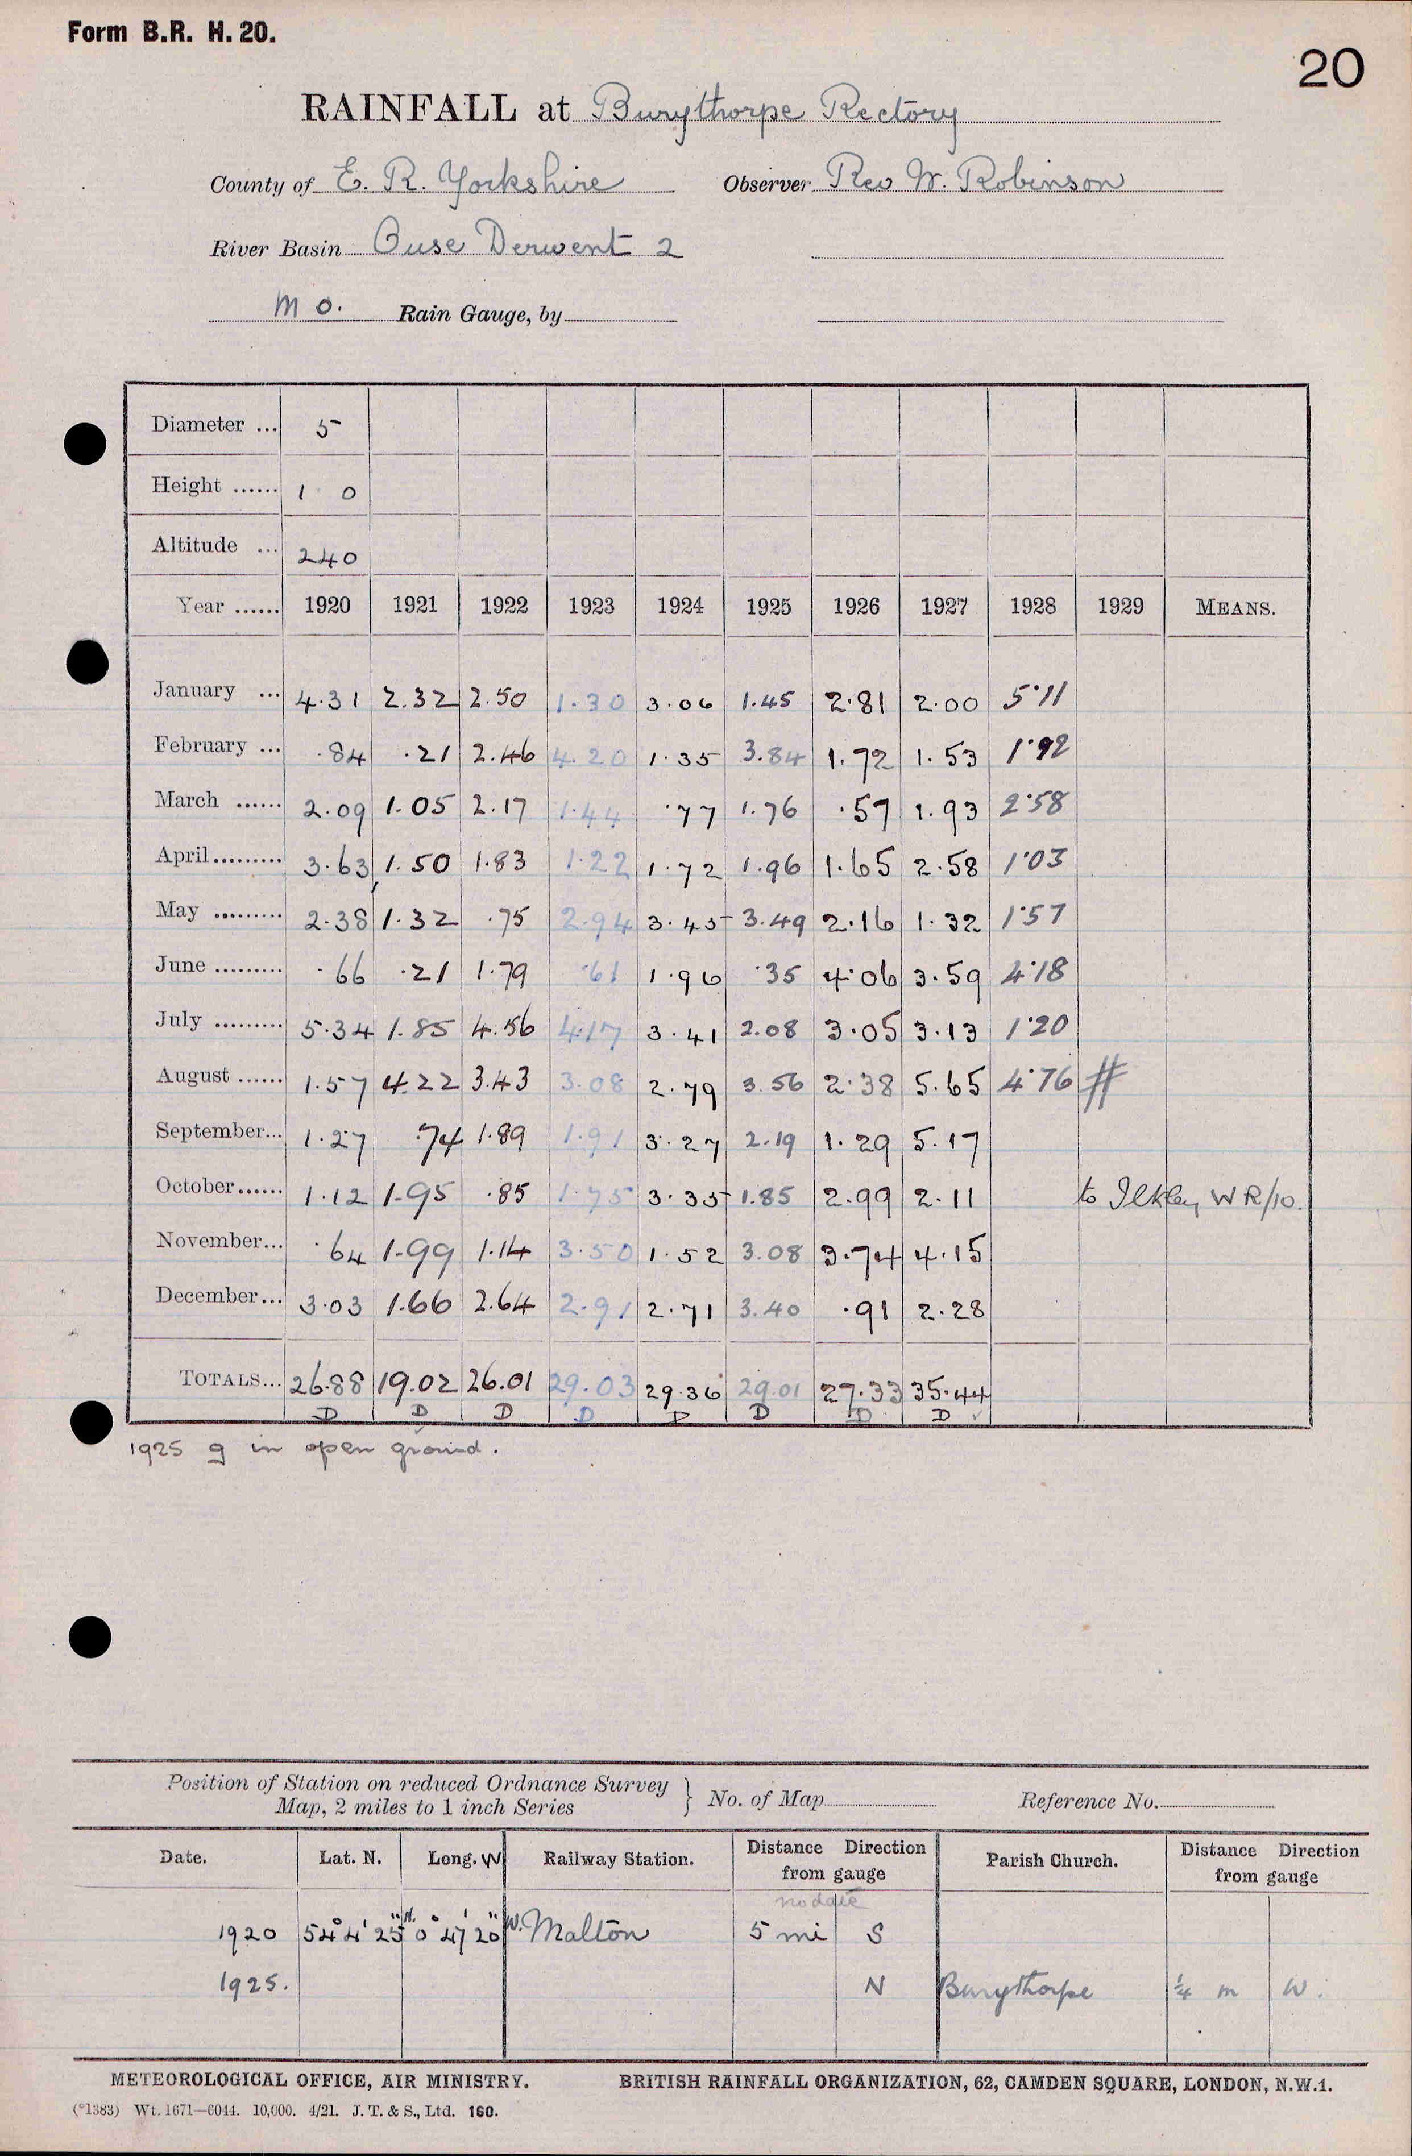 Form B.R. H. 20.
20
RAINFALL at Burythorpe Rectory
County of E. R. Yorkshire Observer Rev W. Robinson
River Basin Ouse Derwent 2
M O. Rain Gauge, by
Diameter ... 5
Height ...... 1 0
Altitude ... 240
Year ...... 1920 1921 1922 1923 1924 1925 1926 1927 1928 1929 MEANS.
January ... 4.31 2.32 2.50 1.30 3.06 1.45 2.81 2.00 5.11
February ... .84 .21 2.46 4.20 1.35 3.84 1.72 1.53 1.92
March ...... 2.09 1.05 2.17 1.44 .77 1.76 .57 1.93 2.58
April......... 3.63 1.50 1.83 1.22 1.72 1.96 1.65 2.58 1.03
May ......... 2.38 1.32 .75 2.94 3.45 3.49 2.16 1.32 1.57
June ......... .66 .21 1.79 .61 1.96 .35 4.06 3.59 4.18
July ......... 5.34 1.85 4.56 4.17 3.41 2.08 3.05 3.13 1.20
August ...... 1.57 4.22 3.43 3.08 2.79 3.56 2.38 5.65 4.76 #
September... 1.27 .74 1.89 1.91 3.27 2.19 1.29 5.17
October...... 1.12 1.95 .85 1.75 3.35 1.85 2.99 2.11 to Ilkley WR/10.
November... .64 1.99 1.14 3.50 1.52 3.08 3.74 4.15
December... 3.03 1.66 2.64 2.91 2.71 3.40 .91 2.28
TOTALS... 26.88 19.02 26.01 29.03 29.36 29.01 27.33 35.44
D D D D D D D D ✓
1925 g in open ground.
Position of Station on reduced Ordnance Survey
Map, 2 miles to 1 inch Series } No. of Map Reference No.
Date. Lat. N. Long. W Railway Station. Distance Direction from gauge Parish Church. Distance Direction from gauge
no date
1920 54° 4' 25" N. 0° 47' 20" W. Malton 5 mi S
1925. N Burythorpe ¼ m W.
METEOROLOGICAL OFFICE, AIR MINISTRY. BRITISH RAINFALL ORGANIZATION, 62, CAMDEN SQUARE, LONDON, N.W.1.
(*1383) Wt. 1671—6044. 10,000. 4/21. J. T. & S., Ltd. 160.